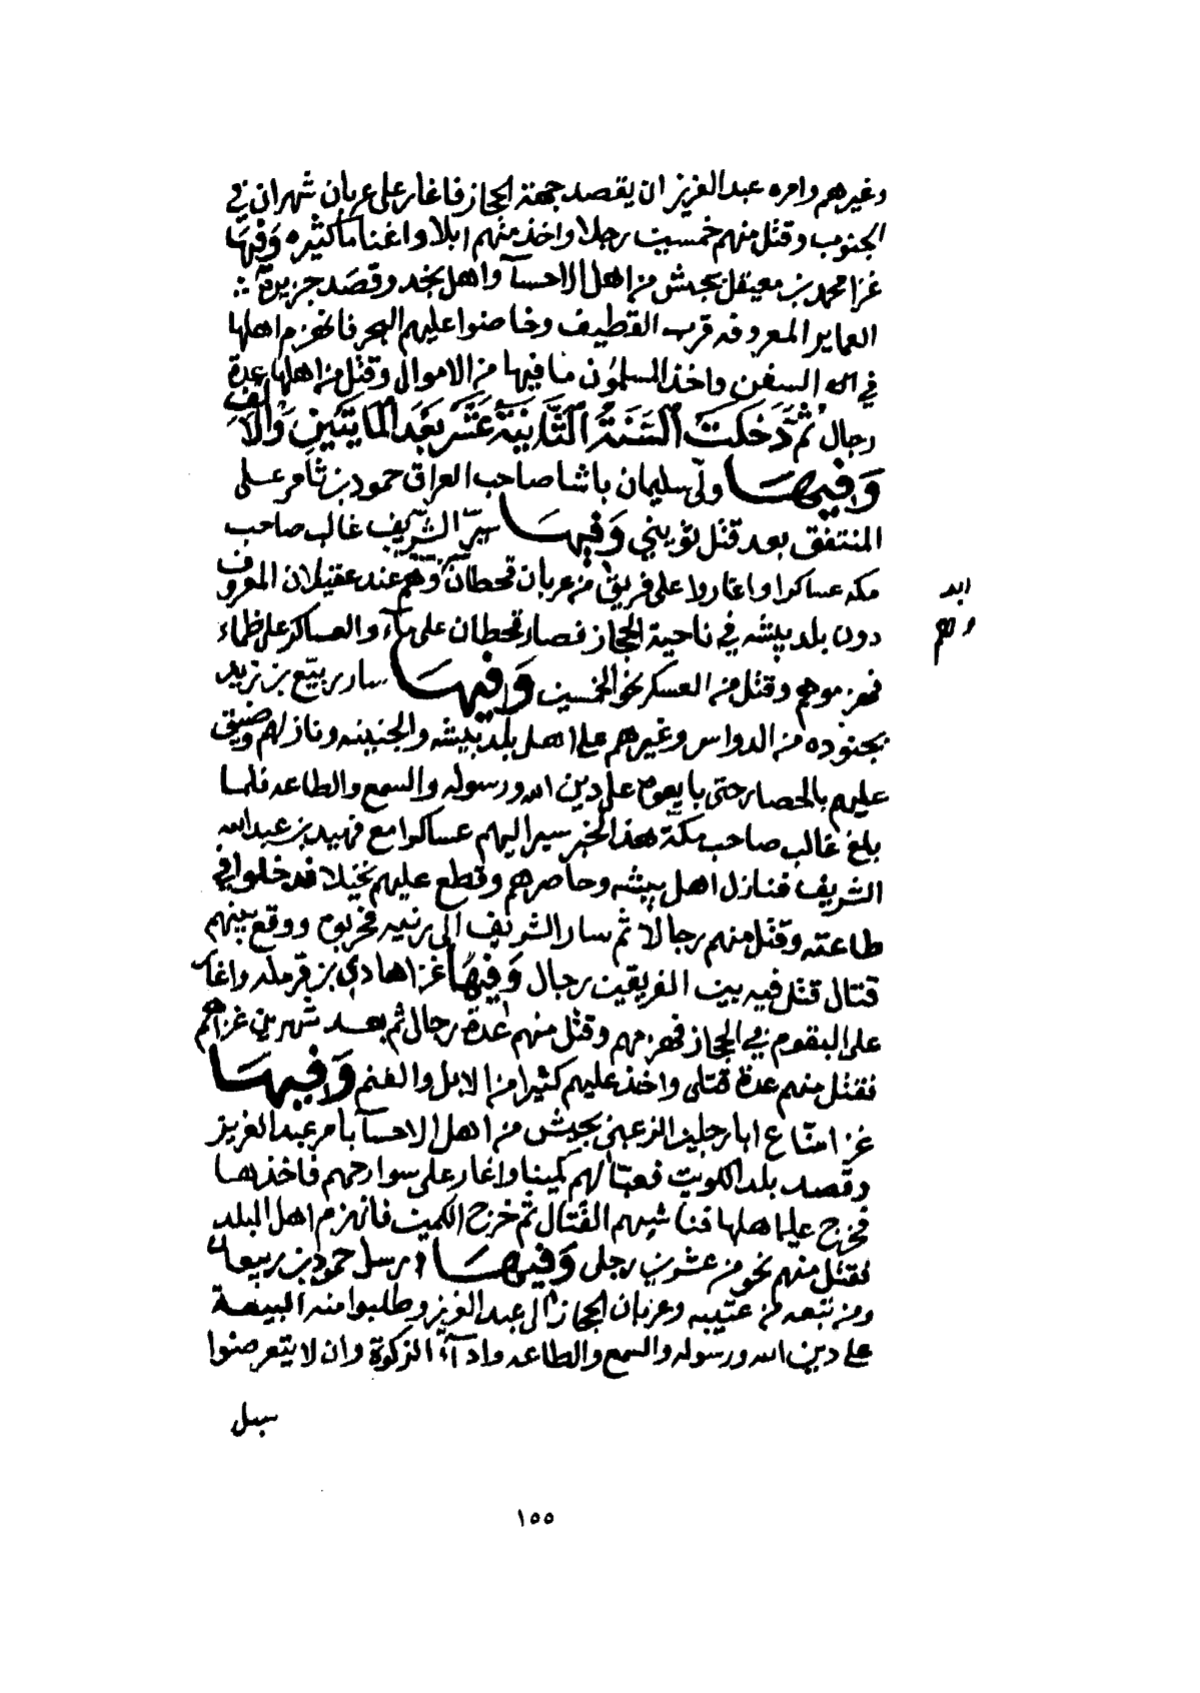 وغيرهم وامره عبدالعزيز ان يقصد جهة الحجاز فاغار على عربان شهران في
الجنوب وقتل منهم خمسين رجلا واخذ منهم ابلا واغناما كثيره وَفِيهَا
غزا محمد بن معيقل بجيش من اهل الاحسآ واهل نجد وقصد جزيرة
العماير المعروفه قرب القطيف وخاضوا عليهم البحر فانهزم اهلها
في السفن واخذ المسلمون ما فيها من الاموال وقتل من اهلها عدة
رجال ثُمَّ دَخَلَتْ السَّنَةُ الثَّانِيَةَ عَشَر بَعْدَ المايَتَين وَالألف
وَفِيهَا ولّى سليمان باشا صاحب العراق حمود بن ثامر على
المنتفق بعد قتل ثويني وَفِيهَا سيّر الشّريف غالب صاحب
مكه عساكرا واغاروا على فريق من عربان قحطان وهم عند عقيلان المعروف
دون بلد بيشه في ناحية الحجاز فصار قحطان على مآء والعساكر على ظماء
فهزموهم وقتل من العسكر نحو الخمسين وَفِيهَا سار ربيّع بن زيد
بجنوده من الدواسر وغيرهم على اهل بلد بيشه والجنينه ونازلهم وضيق
عليهم بالحصار حتى بايعوه على دين الله ورسوله والسمع والطاعه فلما
بلغ غالب صاحب مكة هذا الخبر سير اليهم عساكرا مع فهيد بن عبدالله
الشريف فنازل اهل بيشه وحاصرهم وقطع عليهم نخيلا فدخلوا في
طاعته وقتل منهم رجالا ثم سار الشريف الى رنيه فخربوه ووقع بينهم
قتال قتل فيه بين الفريقين رجال وَفِيهَا غزا هادي بن قرمله واغار
على البقوم في الحجاز فهزمهم وقتل منهم عدة رجال ثم بعد شهرين غزاهم
فقتل منهم عدة قتلى واخذ عليهم كثيرا من الابل والغنم وَفِيهَا
غزا منّاع ابا رجلين الزعبي بجيش من اهل الاحسآ بامر عبدالعزيز
وقصد بلد الكويت فعبا لهم كمينا واغار على سوارحهم فاخذها
فخرج عليه اهلها فناشبهم القتال ثم خرج الكمين فانهزم اهل البلد
فقتل منهم نحو من عشرين رجل وَفِيهَا ارسل حمود بن ربيعان
ومن تبعه من عتيبه وعربان الحجاز الى عبدالعزيز وطلبوا منه البيعة
على دين الله ورسوله والسمع والطاعه وادآء الزكوة وان لا يتعرضوا
سبل
وهم
١٥٥